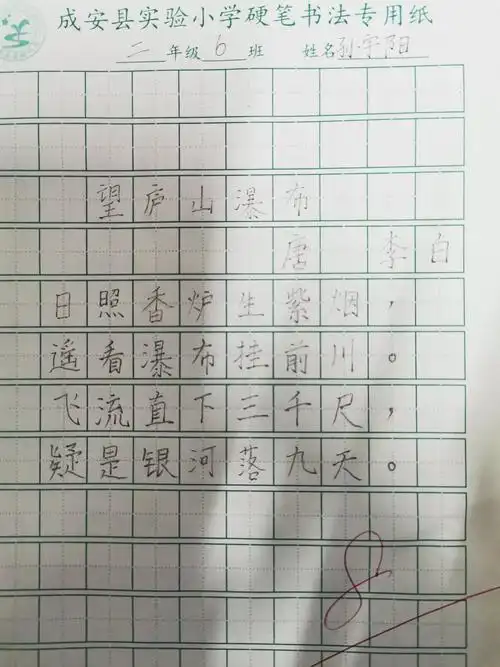 成安县实验小学硬笔书法专用纸
二年级6班 姓名孙宇阳
望庐山瀑布
唐 李白
日照香炉生紫烟，
遥看瀑布挂前川。
飞流直下三千尺，
疑是银河落九天。